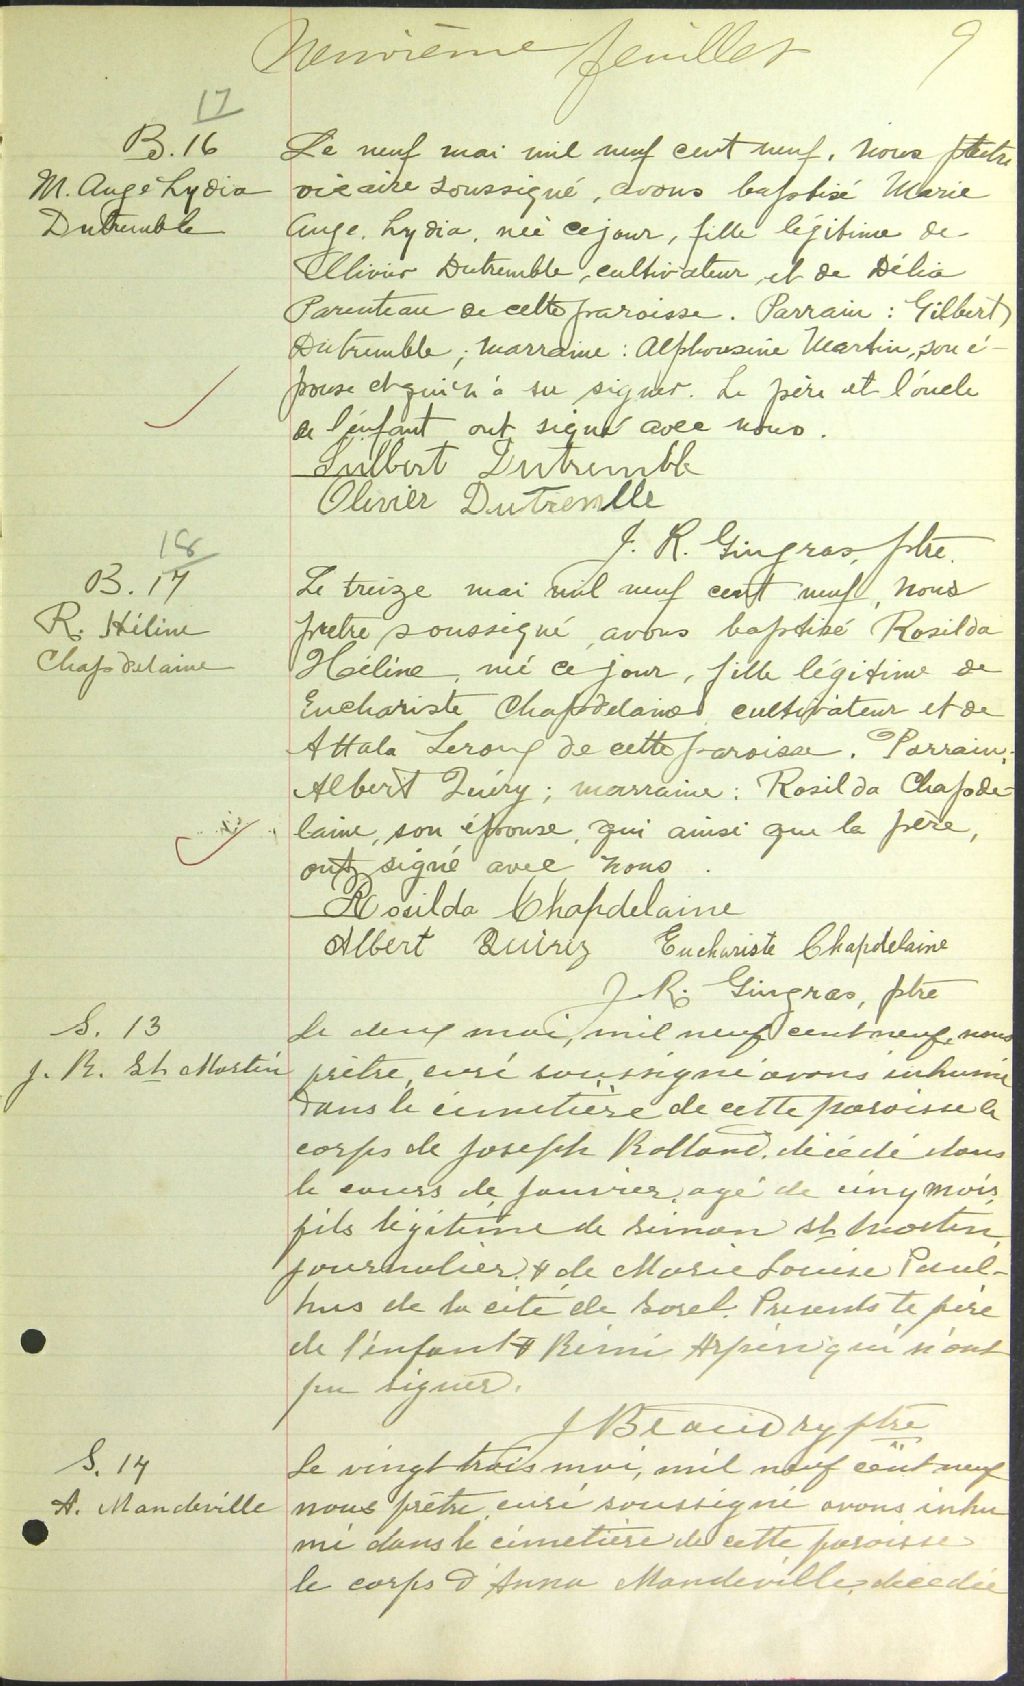 Neuvième feuillet 9
17
B. 16
M. Ange Lydia
Dutremble
Le neuf mai mil neuf cent neuf, nous prêtre
vicaire soussigné, avons baptisé Marie
Ange, Lydia, née ce jour, fille légitime de
Olivier Dutremble, cultivateur, et de Délia
Parenteau de cette paroisse. Parrain : Gilbert
Dutremble ; marraine : Alphonsine Martin, son é-
pouse et qui n'a su signer. Le père et l'oncle
de l'enfant ont signé avec nous.
Dutremble
Olivier Dutremble
J. R. Gingras, ptre.
18
B. 17
R. Héline
Chapdelaine
Le treize mai mil neuf cent neuf, nous
prêtre soussigné, avons baptisé Rosilda
Héline, née ce jour, fille légitime de
Euchariste Chapdelaine, cultivateur et de
Attala de cette paroisse. Parrain :
Albert ; marraine : Rosilda Chapde-
laine, son épouse, qui ainsi que le père,
ont signé avec nous.
Rosilda Chapdelaine
Albert Euchariste Chapdelaine
J. R. Gingras, ptre
S. 13
J. R. St Martin
Le deux mai, mil neuf cent neuf, nous
prêtre, curé soussigné avons inhumé
dans le cimetière de cette paroisse le
corps de Joseph Rolland, décédé dans
le cours de janvier, agé de cinq mois,
fils légitime de Simon St Martin,
journalier, & de Marie Louise Paul-
hus de la cité de Sorel. Présents le père
de l'enfant & Rémi Arpin qui n'ont
pu signer.
J Beaudry ptre
S. 14
A. Mandeville
Le vingt trois mai, mil neuf cent neuf
nous prêtre, curé soussigné avons inhu
mé dans le cimetière de cette paroisse
le corps d'Anna Mandeville, décédée